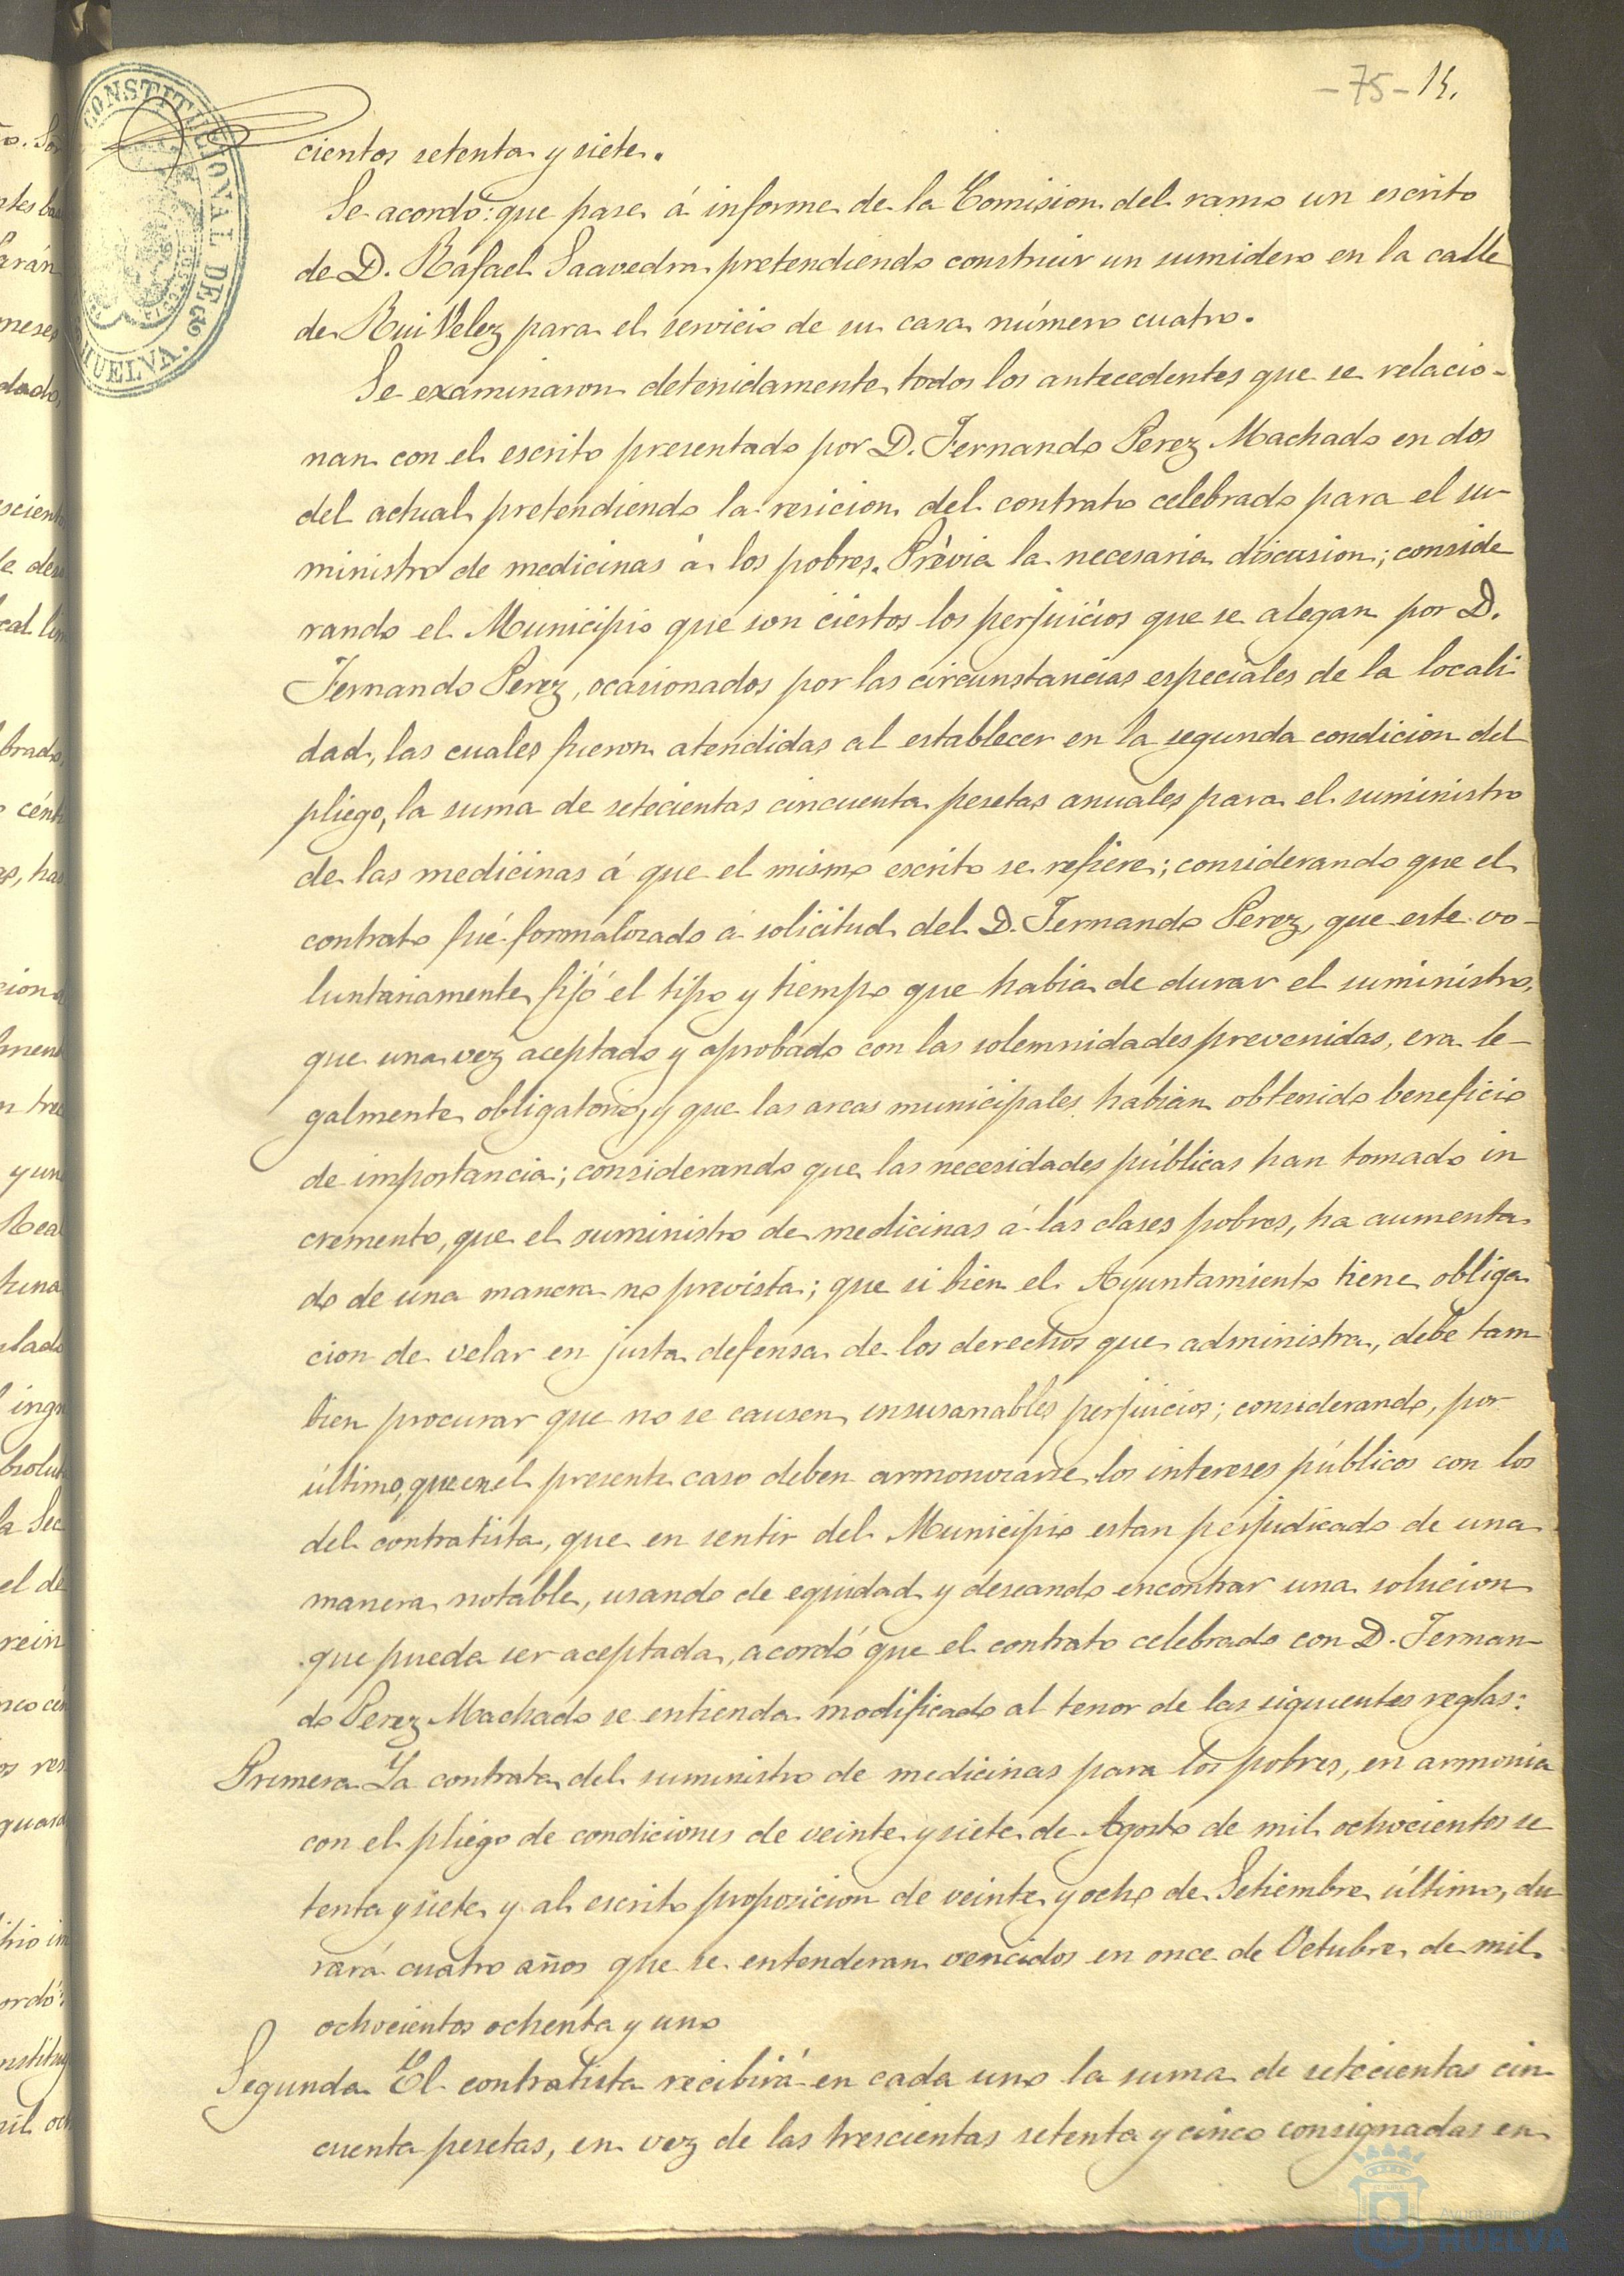 - 75 - 14.
CONSTITUCIONAL DE
HUELVA.
cientos setenta y siete.
Se acordó: que pase á informe de la Comision del ramo un escrito
de D. Rafael Saavedra pretendiendo construir un sumidero en la calle
de Rui Velez para el servicio de su casa número cuatro.
Se examinaron detenidamente todos los antecedentes que se relacio-
nan con el escrito presentado por D. Fernando Perez Machado en dos
del actual pretendiendo la resicion del contrato celebrado para el su-
ministro de medicinas á los pobres. Prévia la necesaria discusion; conside
rando el Municipio que son ciertos los perjuicios que se alegan por D.
Fernando Perez, ocasionados por las circunstancias especiales de la locali-
dad, las cuales fueron atendidas al establecer en la segunda condicion del
pliego, la suma de setecientas cincuenta pesetas anuales para el suministro
de las medicinas á que el mismo escrito se refiere; considerando que el
contrato fué formalizado á solicitud del D. Fernando Perez, que este vo-
luntariamente fijó el tipo y tiempo que habia de durar el suministro,
que una vez aceptado y aprobado con las solemnidades prevenidas, era le-
galmente obligatorio, y que las arcas municipales habian obtenido beneficio
de importancia; considerando que las necesidades públicas han tomado in
cremento, que el suministro de medicinas á las clases pobres, ha aumenta
do de una manera no prevista; que si bien el Ayuntamiento tiene obliga
cion de velar en justa defensa de los derechos que administra, debe tam
bien procurar que no se causen insusanables perjuicios; considerando, por
último, que en el presente caso deben armonizarse los intereses públicos con los
del contratista, que en sentir del Municipio estan perjudicado de una
manera notable, usando de equidad y deseando encontrar una solucion
que pueda ser aceptada, acordó que el contrato celebrado con D. Fernan-
do Perez Machado se entienda modificado al tenor de las siguientes reglas:
Primera La contrata del suministro de medicinas para los pobres, en armonia
con el pliego de condiciones de veinte y siete de Agosto de mil ochocientos se
tenta y siete y al escrito proposicion de veinte y ocho de Setiembre último, du
rará cuatro años que se entenderan vencidos en once de Octubre de mil
ochocientos ochenta y uno
Segunda El contratista recibirá en cada uno la suma de setecientas cin
cuenta pesetas, en vez de las trescientas setenta y cinco consignadas en
Ayuntamiento
HUELVA